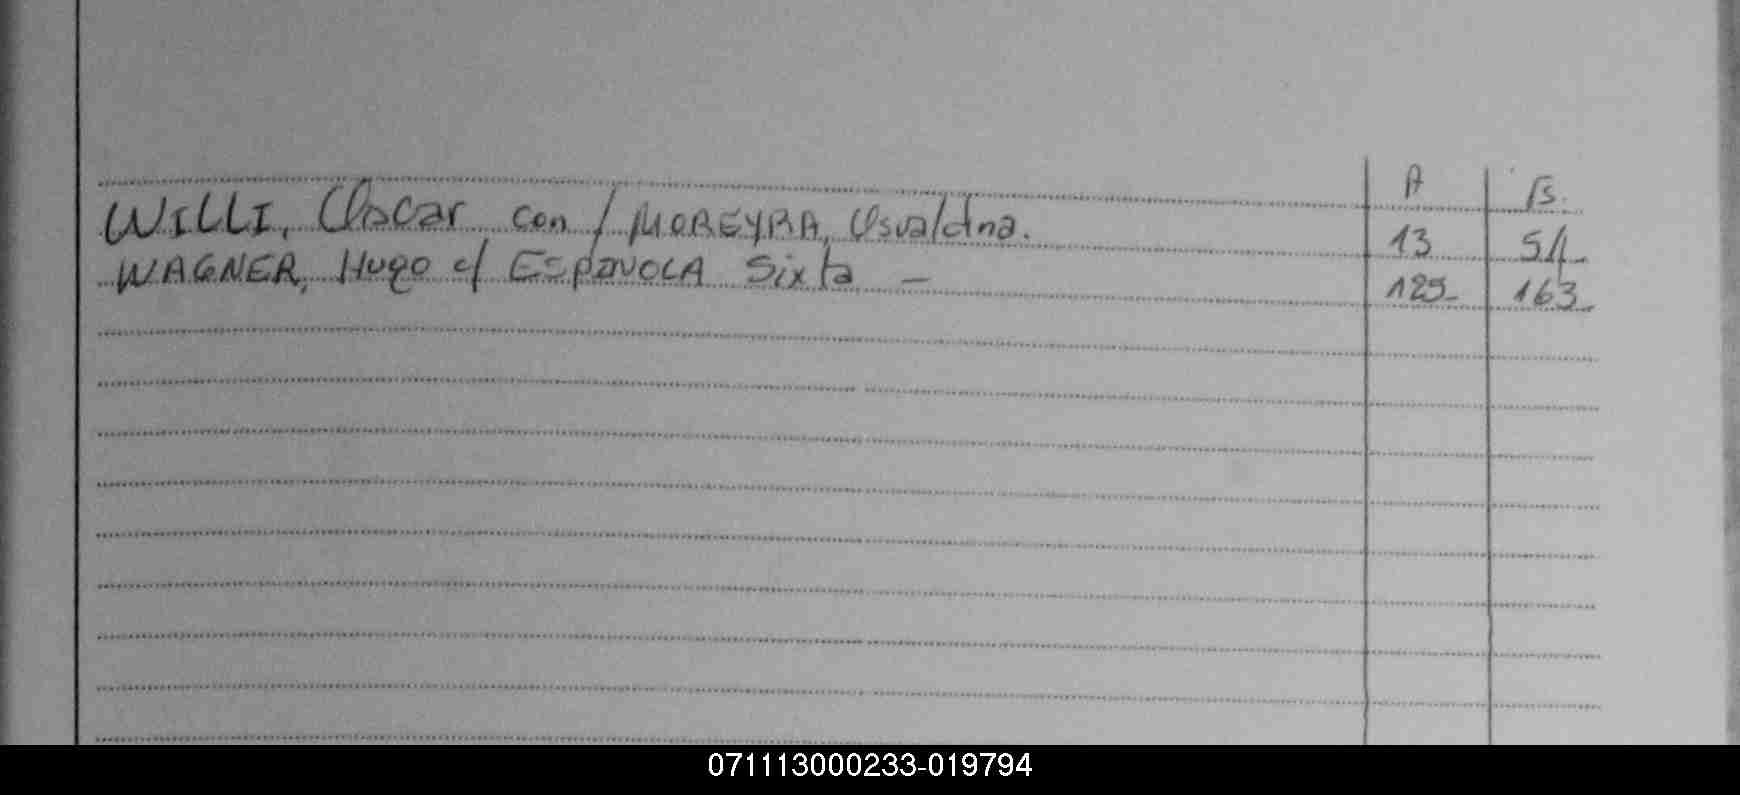 A Fs.
WILLI, Oscar con / MOREYRA, Usvaldina. 13 54-
WAGNER, Hugo c/ ESPINOLA Sixta - 125- 163-
071113000233-019794